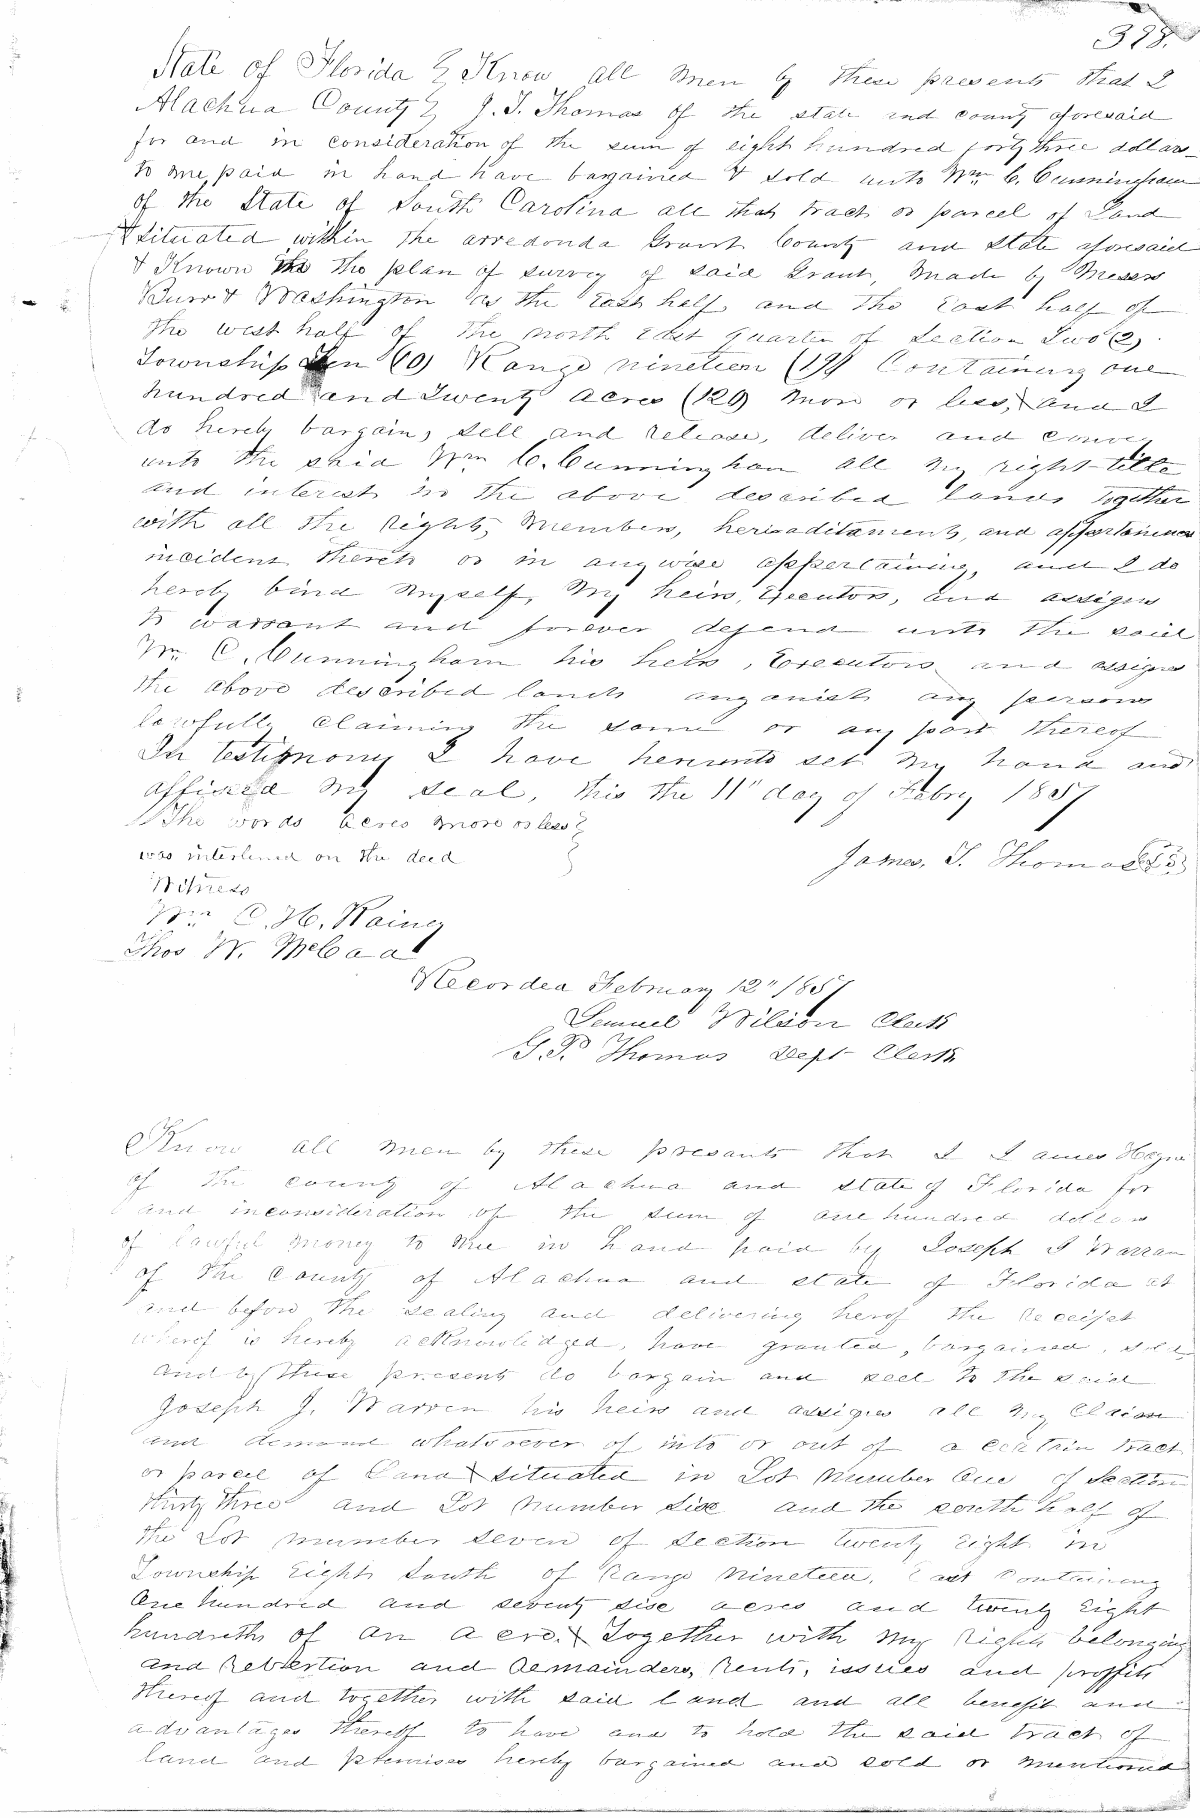 398.
State of Florida } Know all men by these presents that I
Alachua County } J. T. Thomas of the state and county aforesaid
for and in consideration of the sum of eight hundred forty three dollars
to me paid in hand have bargained & sold unto Wm C. Cunningham
of the State of South Carolina all that tract or parcel of Land
& situated within the arredonda Grant County and State aforesaid
& Known the plan of survey of said Grant, Made by Messrs
Burr & Washington as the East half and the East half of
the west half of the north East quarter of Section Two (2)
Township Ten (10) Range nineteen (19) Containing one
hundred and Twenty acres (120) more or less, and I
do hereby bargain, sell and release, deliver and convey
unto the said Wm C. Cunningham all my right title
and interest in the above described lands together
with all the rights, members, heriaditaments, and appertainences
incident thereto or in anywise appertaining, and I do
hereby bind myself, my heirs, Executors, and assigns
to warrant and forever defend unto the said
Wm C. Cunningham his heirs, Executors and assigns
the above described lands anganist any persons
lawfully claiming the same or any part thereof
In testimony I have hereunto set my hand and
affixed my seal, this the 11" day of Febry 1857
The words acres more or less }
was interlined on the deed }
James. T. Thomas
Witness
Wm C. H. Rainey
Thos W. McCaa
Recorded February 12" 1857
Samuel Wilson Clerk
G. P. Thomas Dept Clerk
Know all men by these presants that I James
of the county of Alachua and state of Florida for
and inconsideration of the sum of one hundred dollars
of lawful money to me in hand paid by Joseph J Warran
of the County of Alachua and state of Florida at
and before the sealing and delivering herof the Receipt
wherof is hereby acknowledged, have granted, bargained, sold
and by these present do bargain and sell to the said
Joseph J. Warren his heirs and assigns all my Claim
and demand whatsoever of into or out of a certain tract
or parcel of Land & situated in Lot number One of Section
thirty three and Lot number Six and the south half of
the Lot number seven of section twenty Eight in
Township Eight south of range nineteen, East Containing
One hundred and seventy six acres and twenty Eight
hundreths of an acre. & Together with my rights belonging
and revertion and Remainders, rents, issues and proffits
thereof and together with said land and all benefit and
advantages thereof to have and to hold the said tract of
land and premises hereby bargained and sold or mentioned